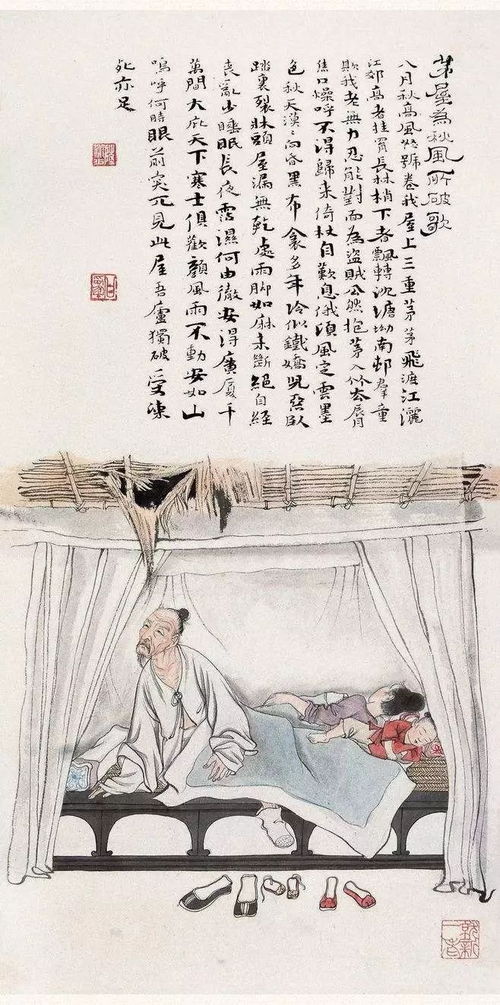 茅屋為秋風所破歌
八月秋高風怒號卷我屋上三重茅茅飛渡江灑
江郊高者挂罥長林梢下者飄轉沈塘坳南邨群童
欺我老無力忍能對面為盜賊公然抱茅入竹去唇
焦口燥呼不得歸來倚杖自歎息俄頃風定雲墨
色秋天漠〻向昏黑布衾多年冷似鐵嬌兒惡臥
踏裏裂牀頭屋漏無乾處雨腳如麻未斷絕自經
喪亂少睡眠長夜霑濕何由徹安得廣廈千
萬間大庇天下寒士俱歡顏風雨不動安如山
嗚呼何時眼前突兀見此屋吾廬獨破受凍
死亦足